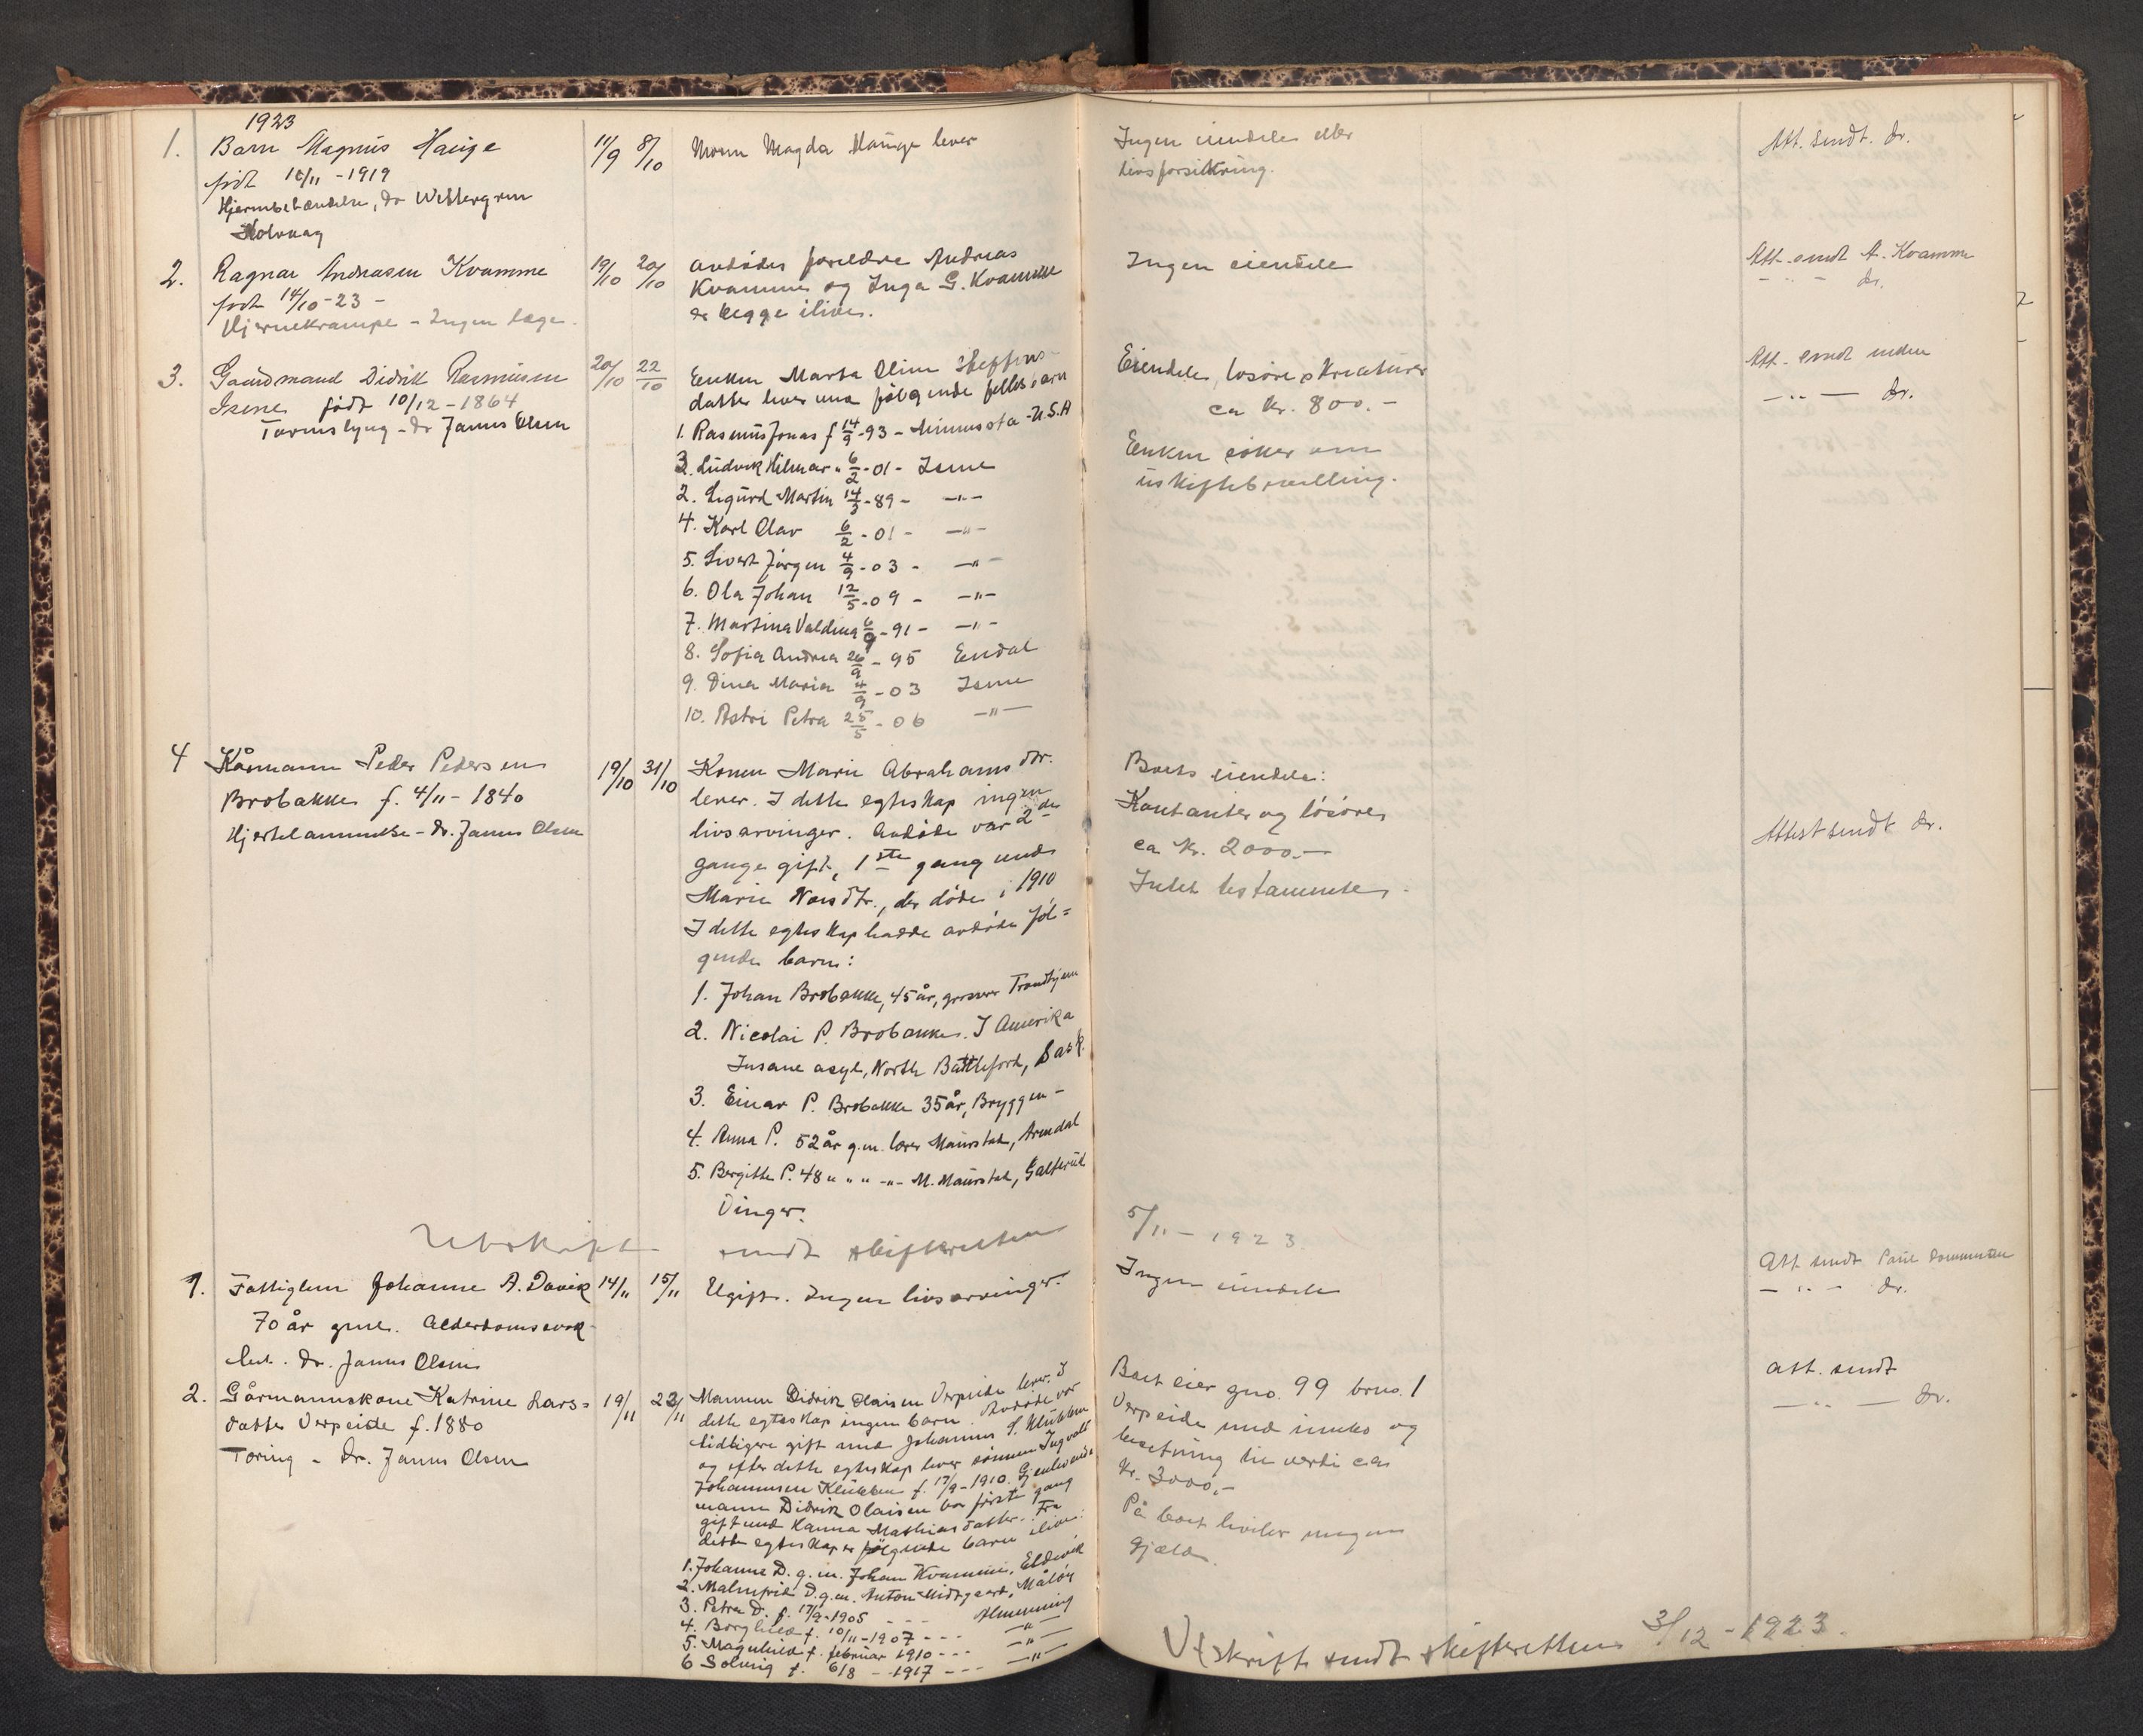 1923
1. Barn Magnus Hauge 11/9 8/10 Moren Magda Hauge lever Ingen eiendele eller Att. sendt. dr.
født 10/11 - 1919 livsforsikring.
dr Wettergren
2. Ragnar Andreasen Kvamme 19/10 20/10 avdødes forældre Andreas Ingen eiendele Att. sendt A. Kvamme
født 14/10-23 - Kvamme og Inga G. Kvamme - " - dr.
Hjernekrampe - Ingen læge. er begge ilive.
3. Gaardmand Didrik Rasmussen 20/10 22/10 Enken Marta Oline Steffens- Eiendele, løsøre o kreaturer Att. sendt enken
Isene født 10/12 - 1864 datter lever med følgende felles barn ca kr. 800.- - " - dr.
Tarmslyng - dr James Olsen 1. Rasmus Jonas f 14/9-93 - Minnesota - U.S.A
Enken søker om
3. Ludvik Hilmar " 6/2-01- Isene uskiftebevilling.
2. Sigurd Martin 14/3-89- -"-
4. Karl Olav 6/2-01- -"-
5. Sivert Jørgen 4/9-03- -"-
6. Ola Johan 12/5-09- -"-
7. Martina Valdina 6/9-91- -"-
8. Sofia Andrea 26/9-95 Endal
9. Dina Maria 4/9-03 Isene
10. Astri Petra 25/5-06 -"-
4 Kårmann Peder Pedersen 19/10 31/10 Konen Marie Abrahamsdtr. Boets eiendele:
Brobakke f. 4/11 - 1840 lever. I dette egteskap ingen Kontanter og løsøre,
Hjertelammelse - dr. James Olsen livsarvinger. Avdøde var 2de ca kr. 2000.- Attest sendt dr.
gange gift, 1ste gang med Intet testamente.
Marie Nonsdtr., der døde i 1910
I dette egteskap hadde avdøde føl=
gende barn:
1. Johan Brobakke, 45 år, grosserer Trondhjem
2. Nicolai P. Brobakke. I Amerika
Insane asyl, North Battleford, Sask.
3. Einar P. Brobakke 35 år, Bryggen -
4. Anna P. 52 år g.m. lærer Maurstad, Arendal
5. Bergitte P. 48 " " " -"- M. Maurstad, Galterud
Vinger.
Utskrift sendt skifteretten 5/11 - 1923.
1. Fattiglem Johanne A. Davik 14/11 15/11 Ugift. Ingen livsarvinger. Ingen eiendele Att sendt
70 år gml. Alderdomssvak- - " - dr.
het. Dr. James Olsen
2. Gårmannskone Katrine Lars= 19/11 22/11 Mannen Didrik Olaisen Verpeide lever. I Boet eier gno. 99 brno. 1 att. sendt
datter Verpeide f. 1880 dette egteskap ingen barn. Avdøde var Verpeide med innbo og - " - dr.
Tæring - Dr. James Olsen tidligere gift med Johannes S. Klubben besetning til verdi ca
og efter dette egteskap lever sønnen Ingvald kr. 3000,-
Johannesen Klubben f. 17/9 - 1910. Gjenlevende På boet hviler megen
mann Didrik Olaisen var første gang gjæld.
gift med Hanna Mathiasdatter. Fra
dette egteskap er følgende barn ilive:
1. Johanne D. g.m. Johan Kvamme, Eldevik
2. Malmfrid D. g.m. Anton Midtgaard, Måløy
3. Petra D. f. 17/9-1905 - - - Almenning
4. Borghild f. 10/11-1907 - - - -"-
5. Magnhild f. februar 1910 - - - -"-
6 Solveig f. 6/8 - 1917 - - - -"-
Utskrift sendt skifteretten 3/12 - 1923.